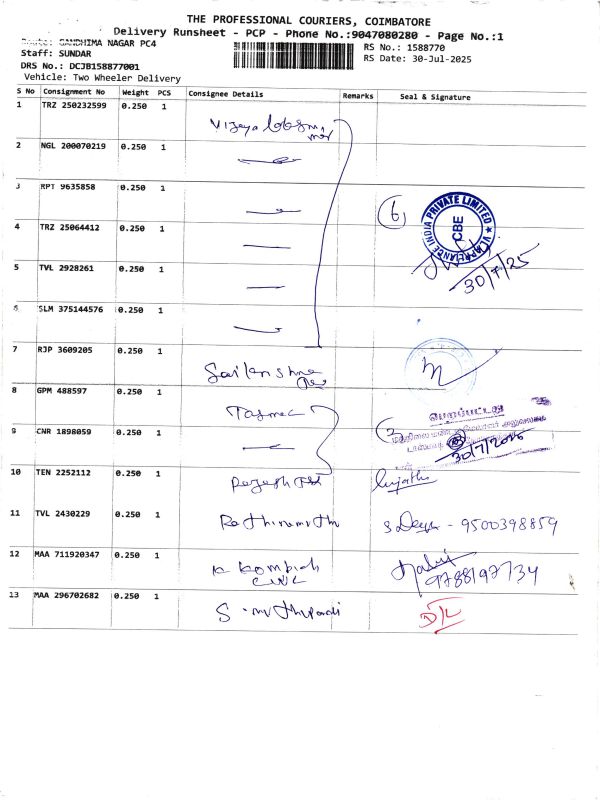 THE PROFESSIONAL COURIERS, COIMBATORE
Delivery Runsheet - PCP - Phone No.:9047080280 - Page No.:1
GANDHIMA NAGAR PC4
RS No.: 1588770
Staff: SUNDAR
RS Date: 30-Jul-2025
DRS No.: DCJB158877001
Vehicle: Two Wheeler Delivery
S No Consignment No Weight PCS Consignee Details Remarks Seal & Signature
1 TRZ 250232599 0.250 1
2 NGL 200070219 0.250 1
3 RPT 9635858 0.250 1
(6)
INDIA PRIVATE LIMITED
CBE
4 TRZ 25064412 0.250 1
30/7/25
5 TVL 2928261 0.250 1
6 SLM 375144576 0.250 1
7 RJP 3609205 0.250 1
8 GPM 488597 0.250 1 Tasmac
9 CNR 1898059 0.250 1
30/7/2025
10 TEN 2252112 0.250 1
11 TVL 2430229 0.250 1 S Deepa - 9500398859
12 MAA 711920347 0.250 1 K Kombiah
9788197734
13 MAA 296702682 0.250 1 D/L